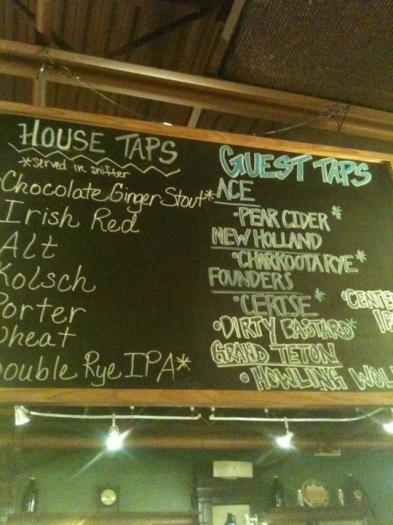 HOUSE TAPS
*served in snifter
Chocolate Ginger Stout*
Irish Red
Alt
Kolsch
Porter
Wheat
Double Rye IPA*
GUEST TAPS
ACE
·PEAR CIDER*
NEW HOLLAND
·CHARKOOTA RYE*
FOUNDERS
·CERISE*
·DIRTY BASTARD*
GRAND TETON
·HOWLING WOL
·CENTE
IP